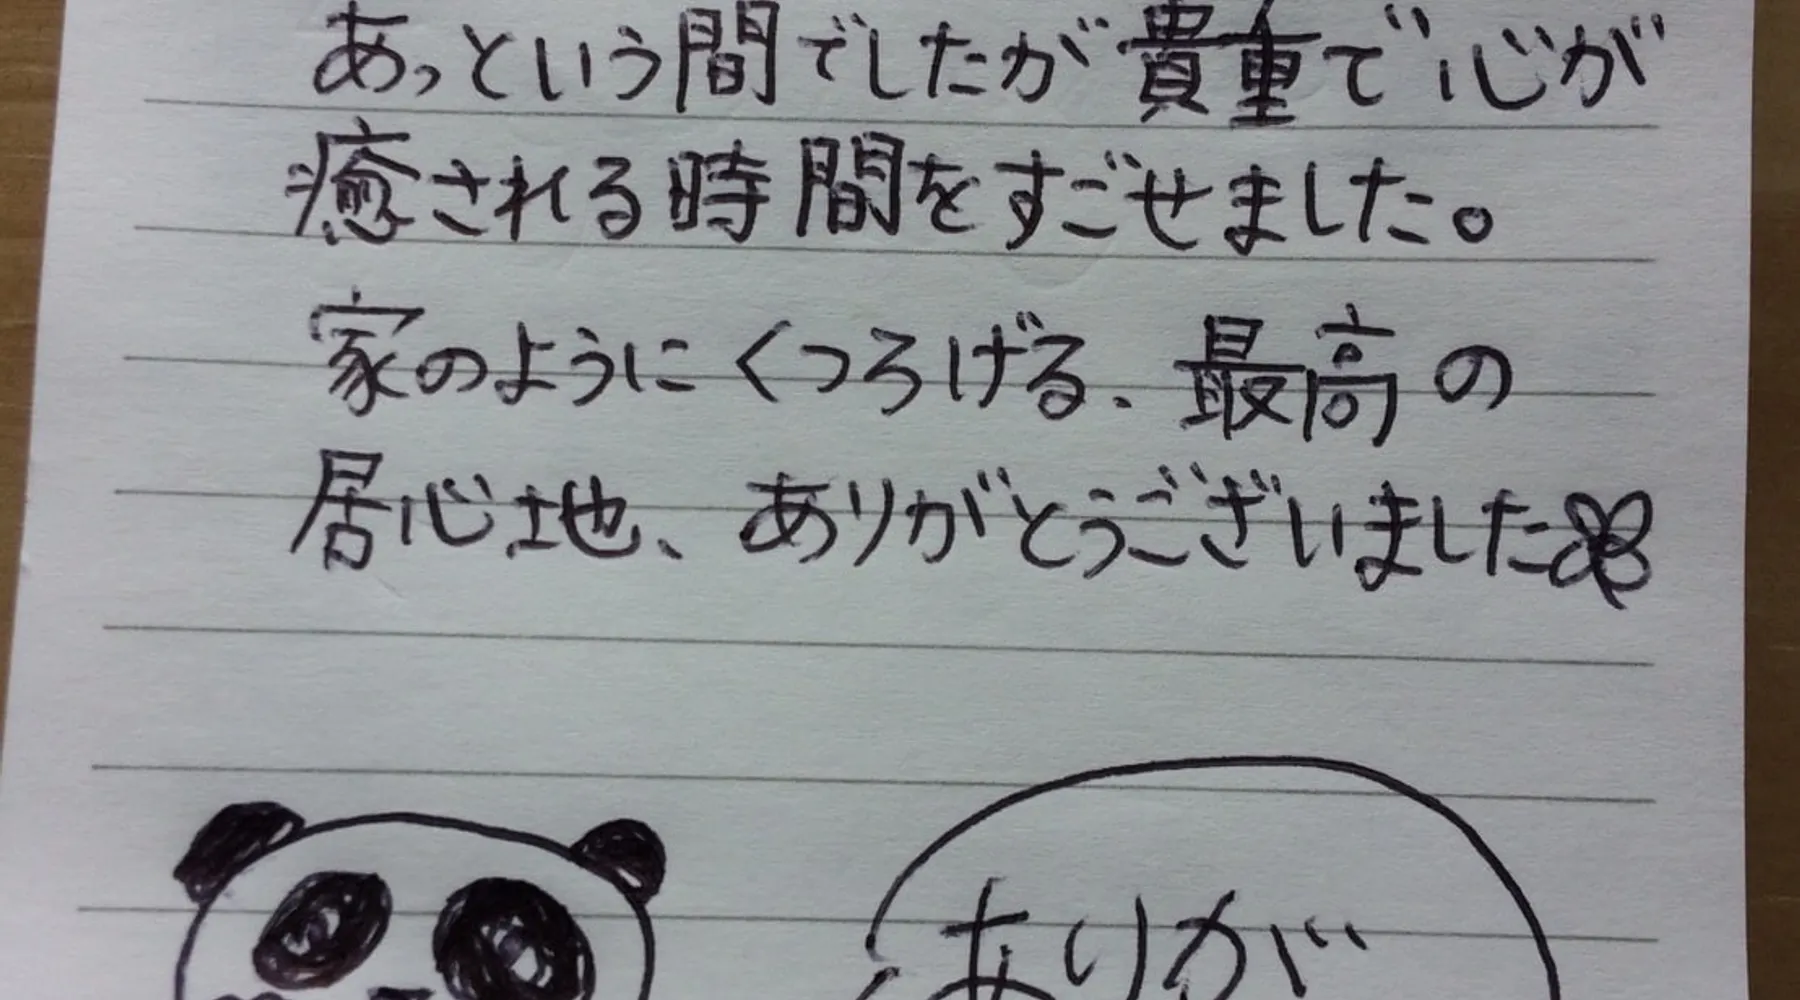 あっという間でしたが貴重で心が
癒される時間をすごせました。
家のようにくつろげる、最高の
居心地、ありがとうございました
ありが